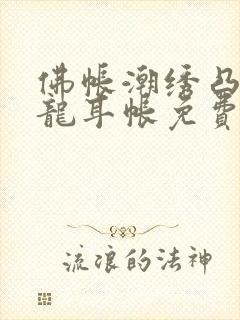 佛帳潮绣凸
龍耳帳免費
流浪的法神